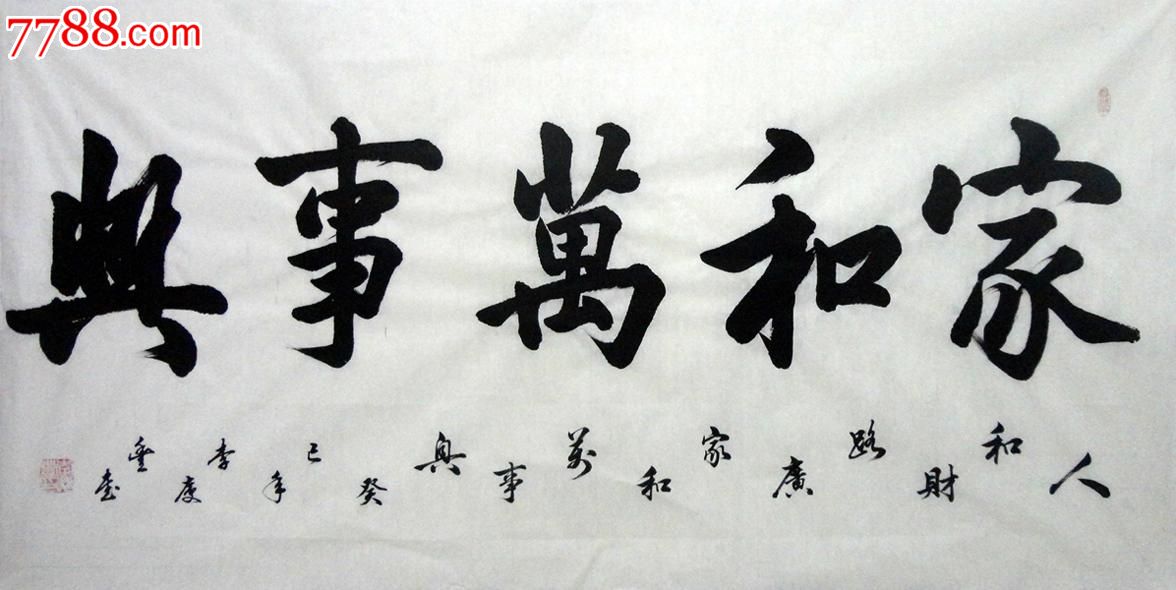 7788.com
家和萬事興
人和財路廣家和萬事興癸巳年李慶書